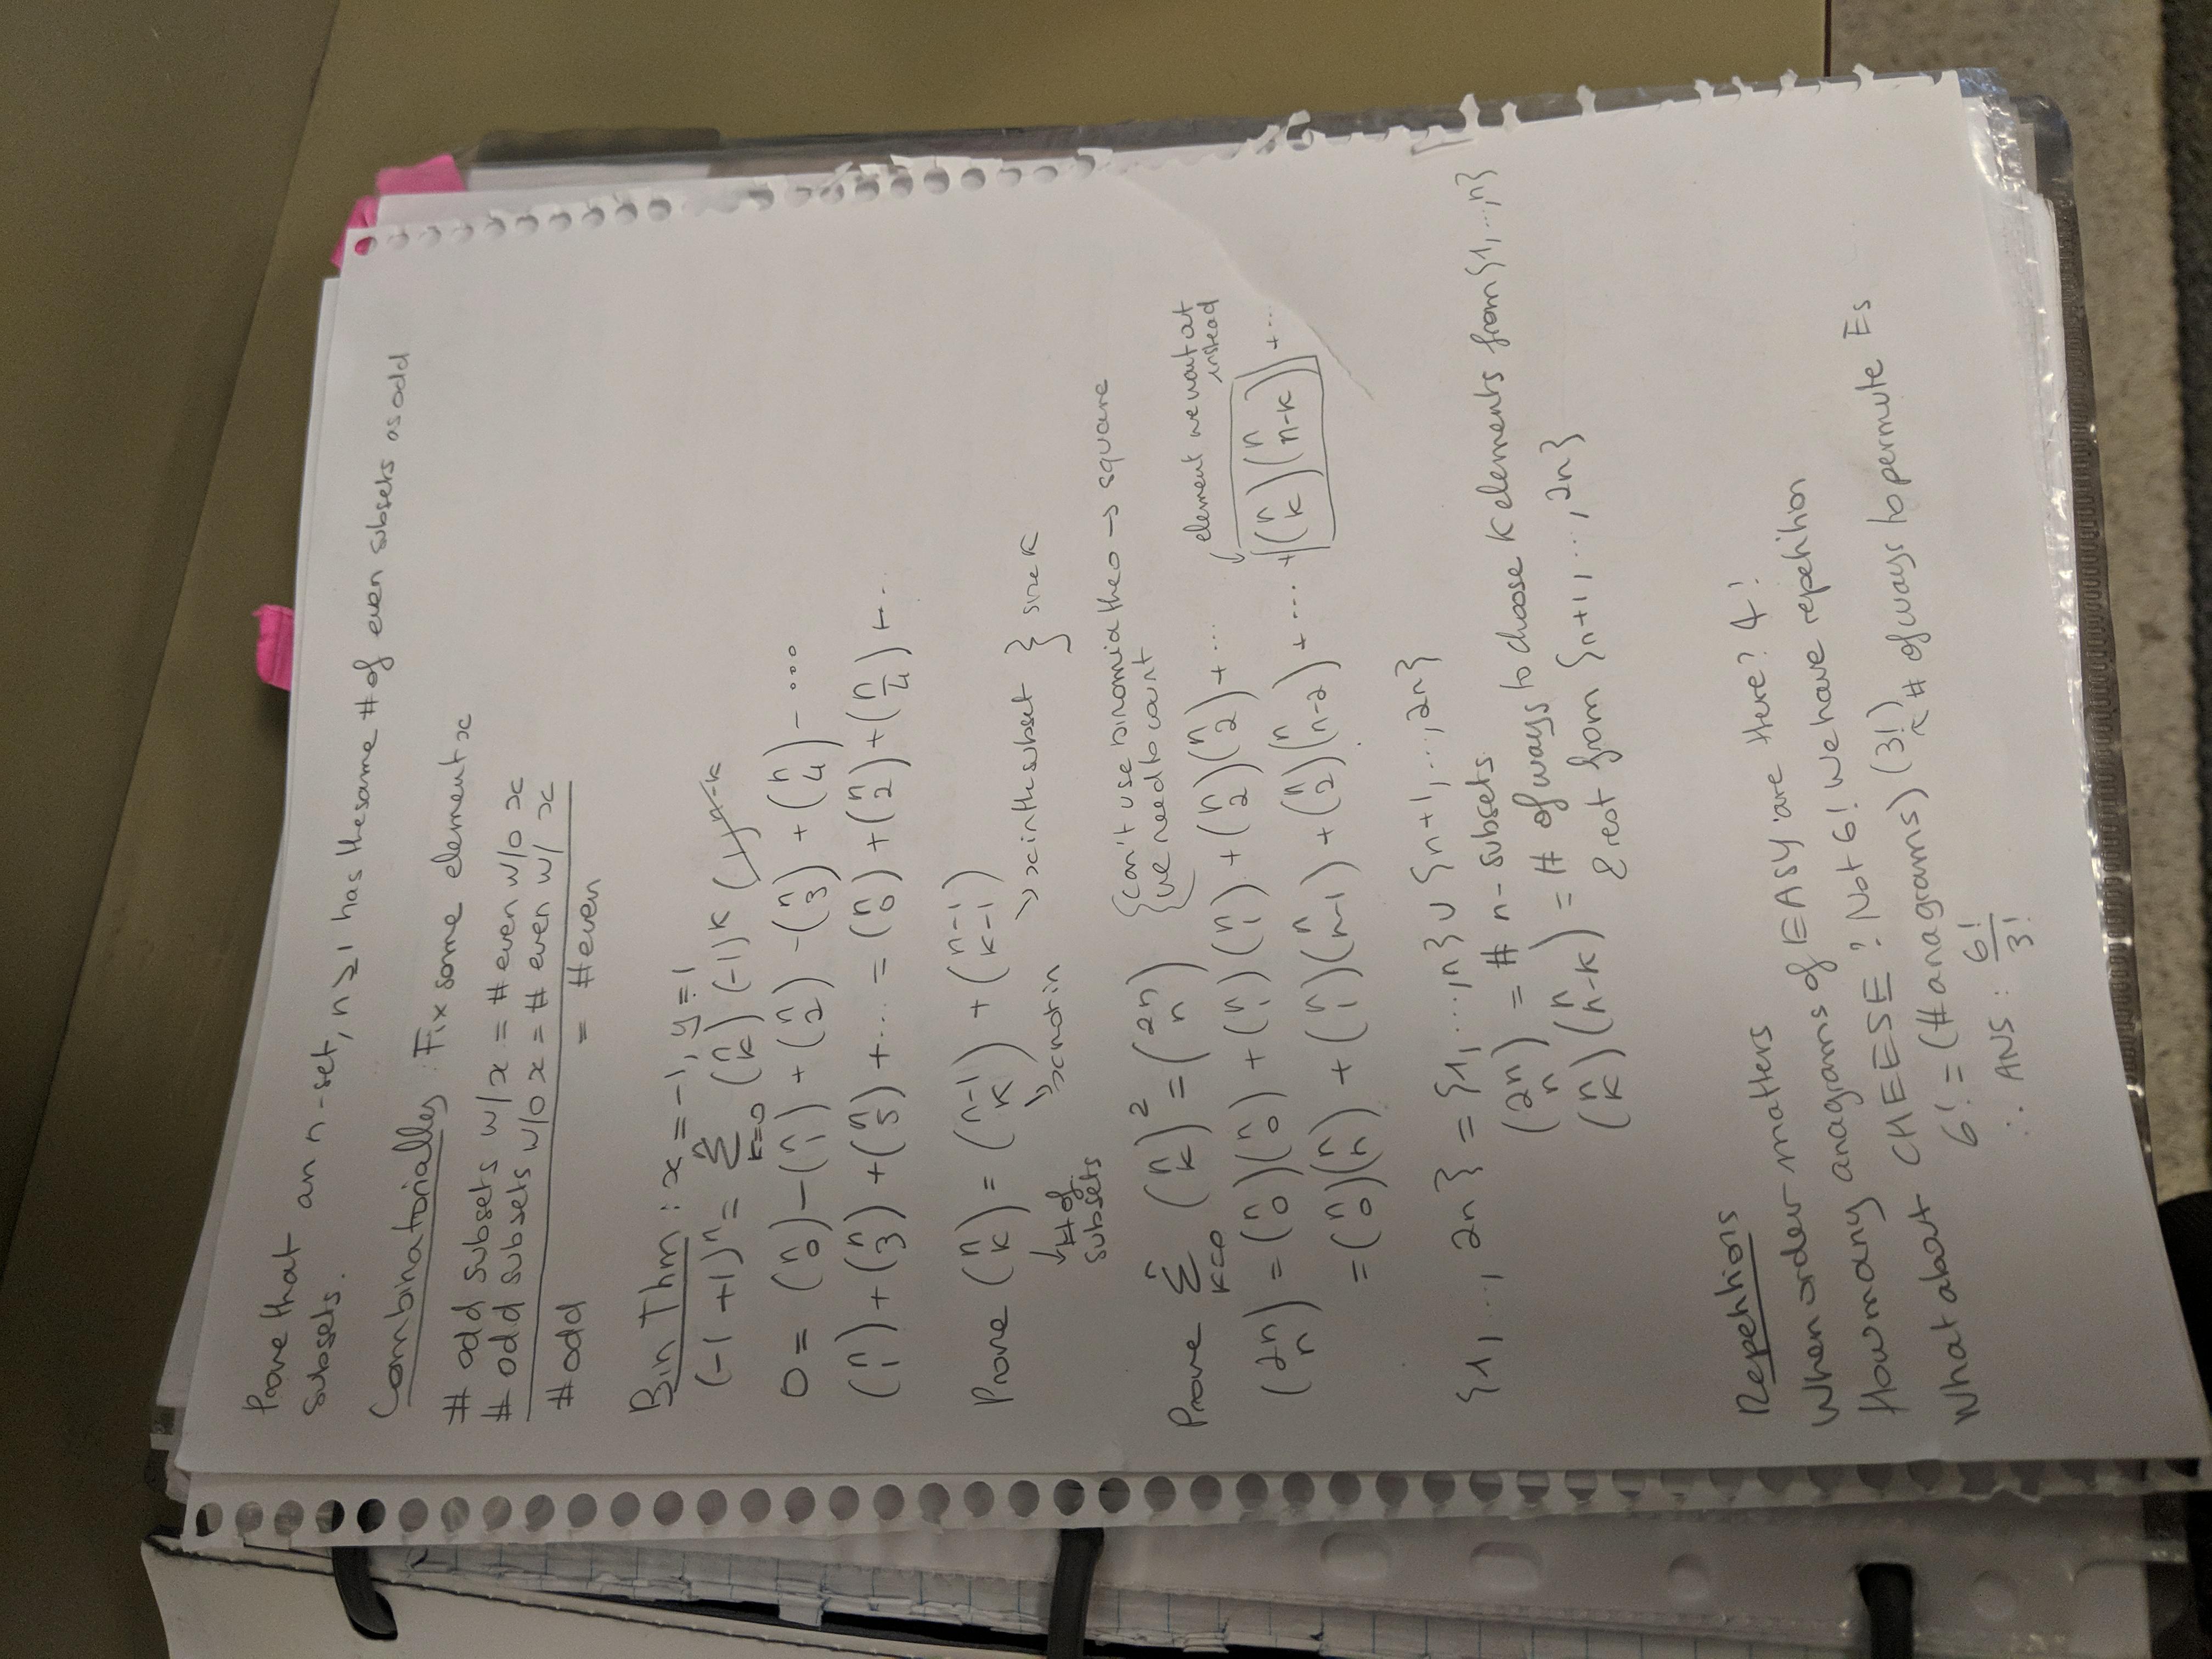 Prove that an n-set, n ≥ 1 has the same # of even subsets as odd
subsets.
Combinatorially: Fix some element x
# odd subsets w/ x = # even w/o x
# odd subsets w/o x = # even w/ x
# odd = # even
Bin Thm : x = -1, y = 1
(-1 + 1)^n = Σ_{k=0}^{n} (n k) (-1)^k (1)^{n-k}
0 = (n 0) - (n 1) + (n 2) - (n 3) + (n 4) - ...
(n 1) + (n 3) + (n 5) + ... = (n 0) + (n 2) + (n 4) + ...
Prove (n k) = (n-1 k) + (n-1 k-1)
↓ # of subsets ↘ x not in ↘ x in the subset } size k
Prove Σ_{k=0}^{n} (n k)^2 = (2n n) { can't use binomia theo → square
we need to count
(2n n) = (n 0)(n 0) + (n 1)(n 1) + (n 2)(n 2) + ...
element we want out
instead
= (n 0)(n n) + (n 1)(n n-1) + (n 2)(n n-2) + ... + (n k)(n n-k) + ...
{1, ..., 2n} = {1, ..., n} ∪ {n+1, ..., 2n}
(2n n) = # n-subsets
(n k)(n n-k) = # of ways to choose k elements from {1, ..., n}
& rest from {n+1, ..., 2n}
Repetitions
When order matters
How many anagrams of EASY are there? 4!
What about CHEESE? Not 6! We have repetition
6! = (# anagrams) (3!) ↖ # of ways to permute Es
∴ ANS : 6!/3!